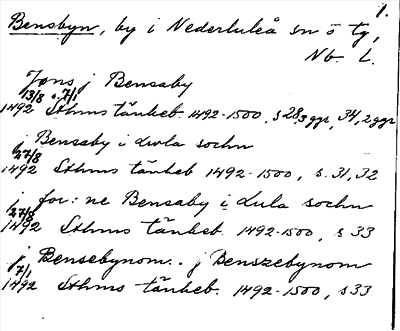 1.
Bensbyn, by i Nederluleå sn ö tg,
Nb. L.
Jöns j Bensaby
13/8 o. 7/1
1492 Sthms tänkeb. 1492-1500, s 28, 3 ggr, 34, 2 ggr
j Bensaby i Lwla sochn
27/8
1492 Sthms tänkeb 1492-1500, s. 31, 32
j for: ne Bensaby i Lula sochn
27/8
1492 Sthms tänkeb. 1492-1500, s 33
j Bensebynom. . j Benszebynom
7/1
1492 Sthms tänkeb. 1492-1500, s 33